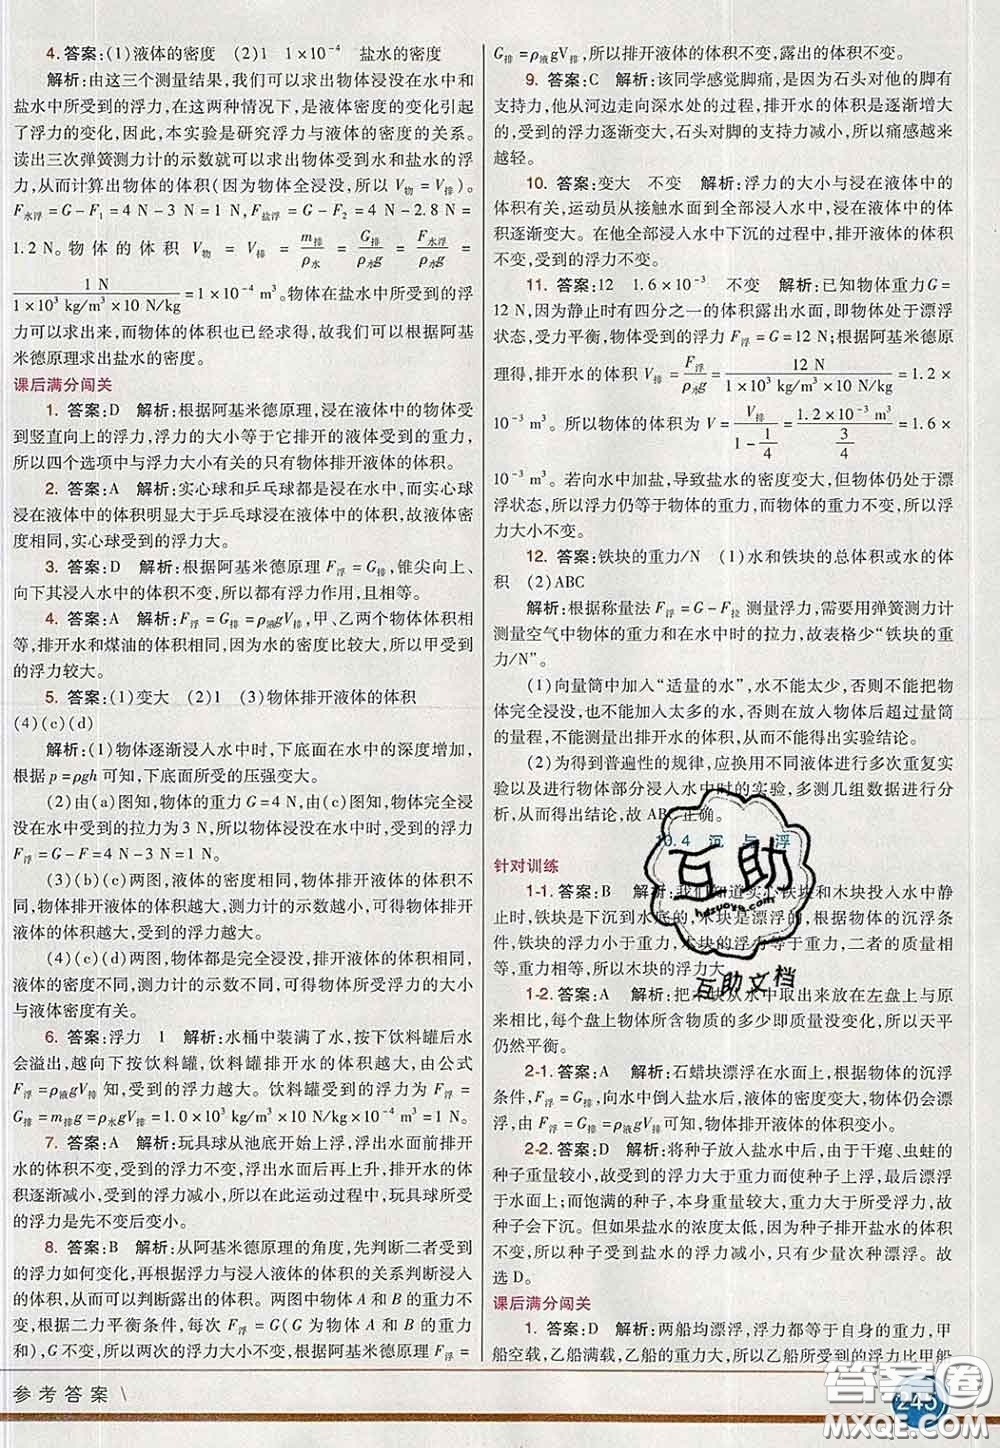 4. 答案:(1)液体的密度　(2)1　1×10⁻⁴　盐水的密度
解析:由这三个测量结果,我们可以求出物体浸没在水中和
盐水中所受到的浮力,在这两种情况下,是液体密度的变化引起
了浮力的变化,因此,本实验是研究浮力与液体的密度的关系。
读出三次弹簧测力计的示数就可以求出物体受到水和盐水的浮
力,从而计算出物体的体积(因为物体全浸没,所以 V物 = V排)。
F水浮 = G - F₁ = 4 N - 3 N = 1 N, F盐浮 = G - F₂ = 4 N - 2.8 N =
1.2 N。物体的体积 V物 = V排 = m排/ρ水 = G排/ρ水g = F水浮/ρ水g =
1 N/(1×10³ kg/m³×10 N/kg) = 1×10⁻⁴ m³。物体在盐水中所受到的浮
力可以求出来,而物体的体积也已经求得,故我们可以根据阿基
米德原理求出盐水的密度。
课后满分闯关
1. 答案:D　解析:根据阿基米德原理,浸在液体中的物体受
到竖直向上的浮力,浮力的大小等于它排开的液体受到的重力,
所以四个选项中与浮力大小有关的只有物体排开液体的体积。
2. 答案:A　解析:实心球和乒乓球都是浸在水中,而实心球
浸在液体中的体积明显大于乒乓球浸在液体中的体积,故液体密
度相同,实心球受到的浮力大。
3. 答案:D　解析:根据阿基米德原理 F浮 = G排,锥尖向上、
向下其浸入水中的体积不变,所以都有浮力作用,且相等。
4. 答案:A　解析:F浮 = G排 = ρ液gV排,甲、乙两个物体体积相
等,排开水和煤油的体积相同,因为水的密度比较大,所以甲受到
的浮力较大。
5. 答案:(1)变大　(2)1　(3)物体排开液体的体积
(4)(c)(d)
解析:(1)物体逐渐浸入水中时,下底面在水中的深度增加,
根据 p = ρgh 可知,下底面所受的压强变大。
(2)由(a)图知,物体的重力 G = 4 N,由(c)图知,物体完全浸
没在水中受到的拉力为 3 N,所以物体完全浸没在水中时,受到的
浮力F浮 = G - F = 4 N - 3 N = 1 N。
(3)(b)(c)两图,液体的密度相同,物体排开液体的体积不
同,测力计的示数不同,测力计的示数越小,可得物体排开液
体的体积越大,受到的浮力越大。
(4)(c)(d)两图,物体都是完全浸没,排开液体的体积相同,
而液体的密度不同,测力计的示数不同,可得物体所受浮力的大小
与液体密度有关。
6. 答案:浮力　1　解析:水桶中装满了水,按下饮料罐后水
会溢出,越向下按饮料罐,饮料罐排开水的体积越大,由公式
F浮 = ρ液gV排 知,受到的浮力越大。饮料罐受到的浮力 F浮 =
G排 = m排g = ρ水gV排 = 1.0×10³ kg/m³×10 N/kg×1×10⁻⁴ m³ = 1 N。
7. 答案:A　解析:玩具球从池底开始上浮,浮出水面前排开
水的体积不变,受到的浮力不变,浮出水面后再上升,排开水的体
积逐渐减小,受到的浮力逐渐减小,所以在此运动过程中,玩具球所受
的浮力是先不变后变小。
8. 答案:B　解析:从阿基米德原理的角度,先判断二者受到
的浮力如何变化,再根据浮力与浸入液体的体积的关系判断浸入
的体积,从而可以判断露出的体积。两图中物体 A 和 B 的重力不
变,根据二力平衡条件,每次 F浮 = G(G 为物体 A 和 B 的重力
和),G 不变,所以两次的浮力大小不变,浮力大小不变,根据 F浮 =
G排 = ρ液gV排,所以排开液体的体积不变,露出的体积不变。
9. 答案:C　解析:该同学感觉脚痛,是因为石头对他的脚有
支持力,他从河边走向深水处的过程,排开水的体积是逐渐增大
的,受到的浮力逐渐变大,石头对脚的支持力减小,所以痛感越来
越轻。
10. 答案:变大　不变　解析:浮力的大小与浸在液体中的
体积有关,运动员从接触水面到全部浸入水中,浸在液体中的体
积逐渐变大。在他全部浸入水中下沉的过程中,排开液体的体积
不变,受到的浮力不变。
11. 答案:12　1.6×10⁻³　不变　解析:已知物体重力G =
12 N,因为静止时有四分之一的体积露出水面,即物体处于漂浮
状态,受力平衡,物体受到的浮力 F浮 = G = 12 N;根据阿基米德原
理得,排开水的体积 V排 = F浮/ρ水g = 12 N/(1×10³ kg/m³×10 N/kg) = 1.2×
10⁻³ m³。所以物体的体积为 V = V排/(1 - 1/4) = 1.2×10⁻³ m³/(3/4) = 1.6×
10⁻³ m³。若向水中加盐,导致盐水的密度变大,但物体仍处于漂
浮状态,所以浮力仍等于物体的重力,而物体的重力不变,所以浮
力大小不变。
12. 答案:铁块的重力/N　(1)水和铁块的总体积或水的体
积　(2)ABC
解析:根据称量法 F浮 = G - F拉 测量浮力,需要用弹簧测力计
测量空气中物体的重力和在水中时的拉力,故表格少“铁块的重
力/N”。
(1)向量筒中加入“适量的水”,水不能太少,否则不能把物体
完全浸没,也不能加入太多的水,否则在放入物体后超过量筒
的量程,不能测量出排开水的体积,从而不能得出实验结论。
(2)为得到普遍性的规律,应换用不同液体进行多次重复实
验以及进行物体部分浸入水中时的实验,多测几组数据进行分
析,从而得出结论,故 ABC 正确。
10.4　沉　与　浮
针对训练
1-1. 答案:B　解析:我们知道实心铁块和木块投入水中静
止时,铁块是下沉到水底的,木块是漂浮的,根据物体的沉浮条
件,铁块的浮力小于重力,木块的浮力等于重力,二者的质量相
等,重力相等,所以木块的浮力大。
1-2. 答案:A　解析:把木块从水中取出来放在左盘上与原
来相比,每个盘上物体所含物质的多少即质量没变化,所以天平
仍然平衡。
2-1. 答案:A　解析:石蜡块浮在水面上,根据物体的沉浮
条件,F浮 = G物,向水中倒入盐水后,液体密度变大,物体仍会漂
浮,由 F浮 = G排 = ρ液gV排 可知,物体排开液体的体积变小。
2-2. 答案:D　解析:将种子放入盐水中后,由于干瘪、虫蛀的
种子重量较小,故受到的浮力大于重力而使种子上浮,最后漂浮
于水面上;而饱满的种子,本身重量较大,重力大于所受浮力,故
种子会下沉。但如果盐水的浓度太低,因为种子排开盐水的体积
不变,所以种子受到盐水的浮力减小,只有少量种子漂浮。故
选 D。
课后满分闯关
1. 答案:D　解析:两船均漂浮,浮力都等于自身的重力,甲
船空载,乙船满载,乙船的重力大,所以乙船所受浮力比甲船
互助
hdzuoye.com
互助文档
参考答案 \
245
答案圈
MXQE.COM